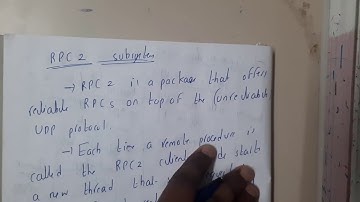 RPC 2 subsystem
→ RPC 2 is a package that offers
reliable RPCs on top of the (unreliable
UDP protocol.
→ Each time a remote procedure is
called the RPC2 client code starts
a new thread that